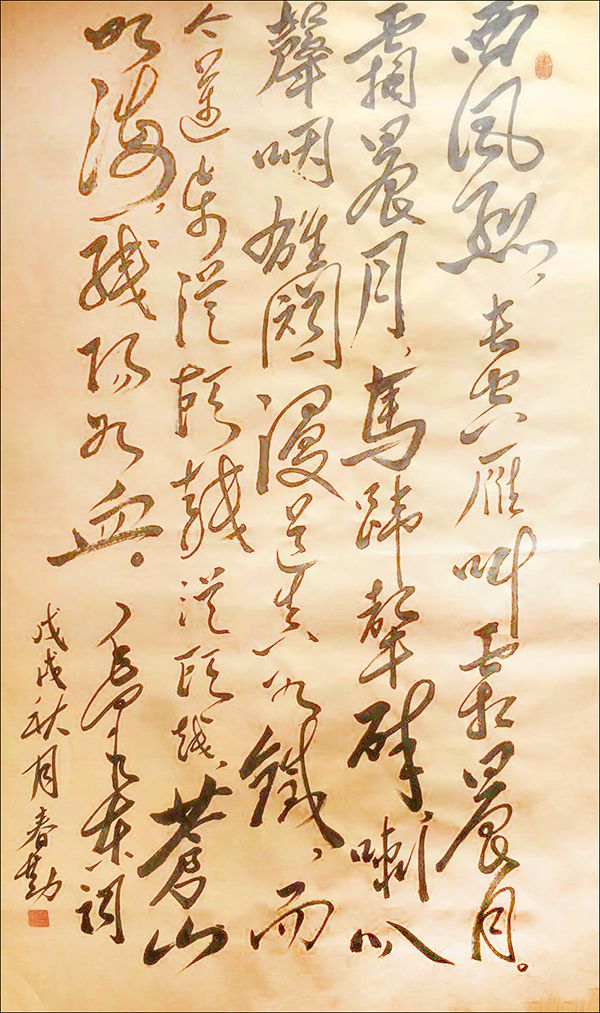 西风烈，长空雁叫霜晨月。
霜晨月，馬蹄聲碎，喇叭
聲咽雄關漫道真如鐵，而
今邁步從頭越從頭越，蒼山
如海，殘陽如血。
毛澤東詞
戊戌秋月春